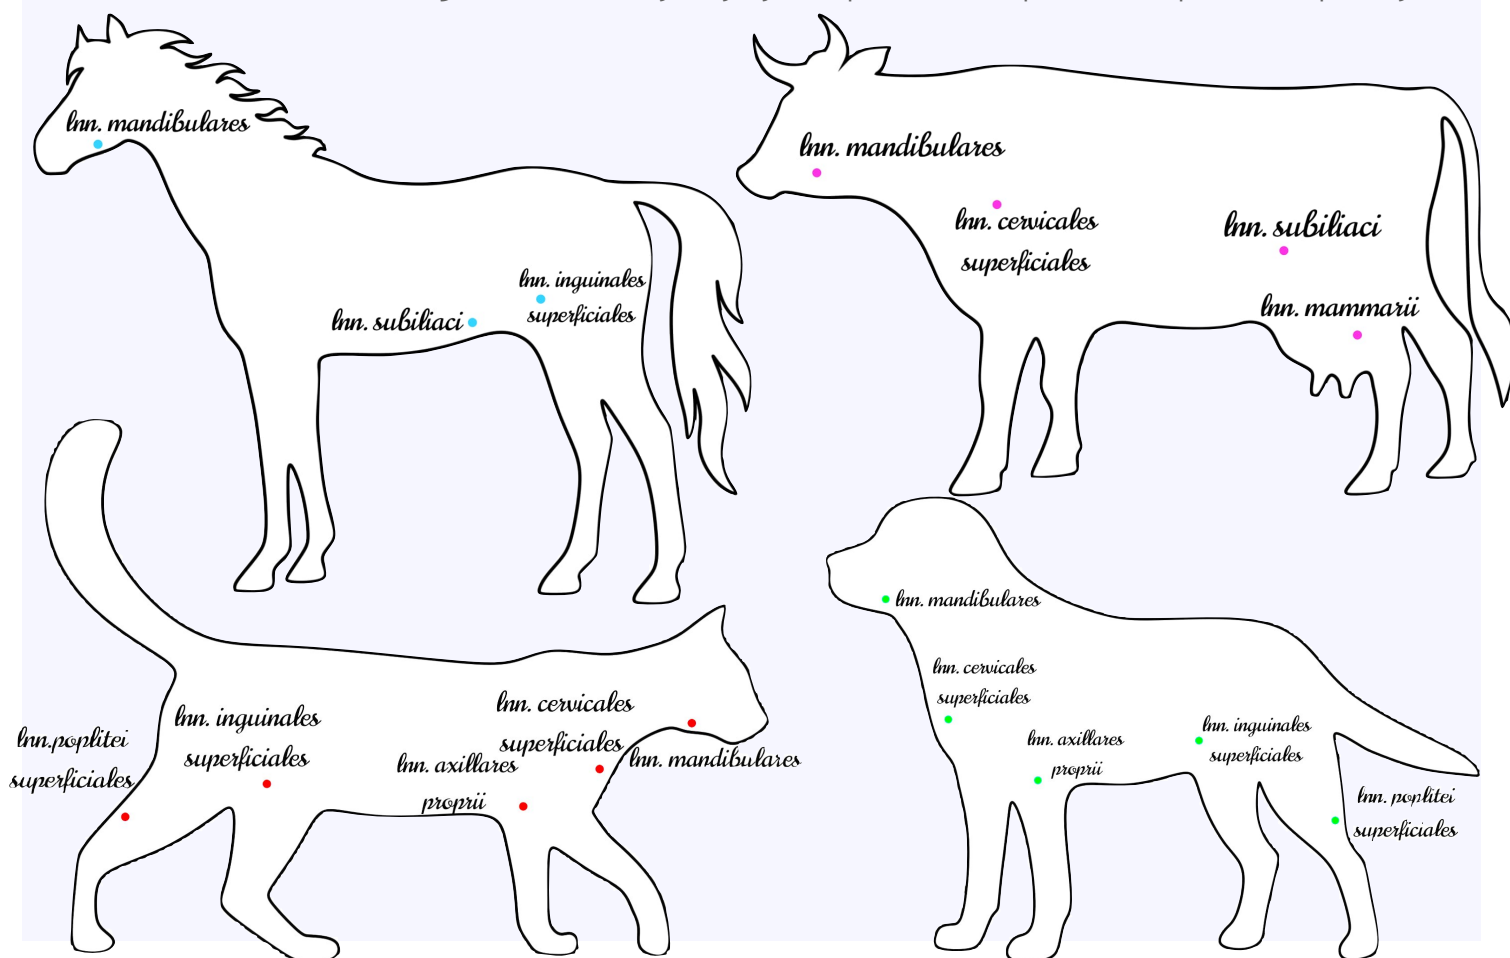 lnn. mandibulares
lnn. inguinales
superficiales
lnn. subiliaci
lnn. mandibulares
lnn. cervicales
superficiales
lnn. subiliaci
lnn. mammarii
lnn. cervicales
superficiales
lnn. inguinales
superficiales
lnn.poplitei
superficiales
lnn. axillares
proprii
lnn. mandibulares
lnn. mandibulares
lnn. cervicales
superficiales
lnn. axillares
proprii
lnn. inguinales
superficiales
lnn. poplitei
superficiales